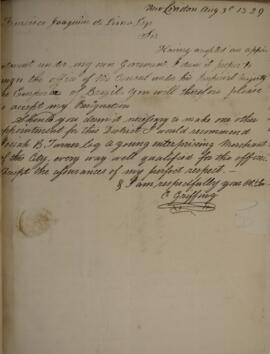 New London Aug 3d 1829
Francisco Joaquim de Lima Esqr
Sir
Having accepted an appoint
ment under my own Government I deem it proper to
resign the office of Vice Consul under his Imperial Majesty
the Emperor of Brazil. You will therefore please
accept my Resignation
Should you deem it necessary to make one other
appointment for this District I would recommend
B. Turner Esq a young enterprising Merchant
of this City, every way well qualified for the office.
Accept the assurances of my perfect respect.
& I am, respectfully your
E Griffing